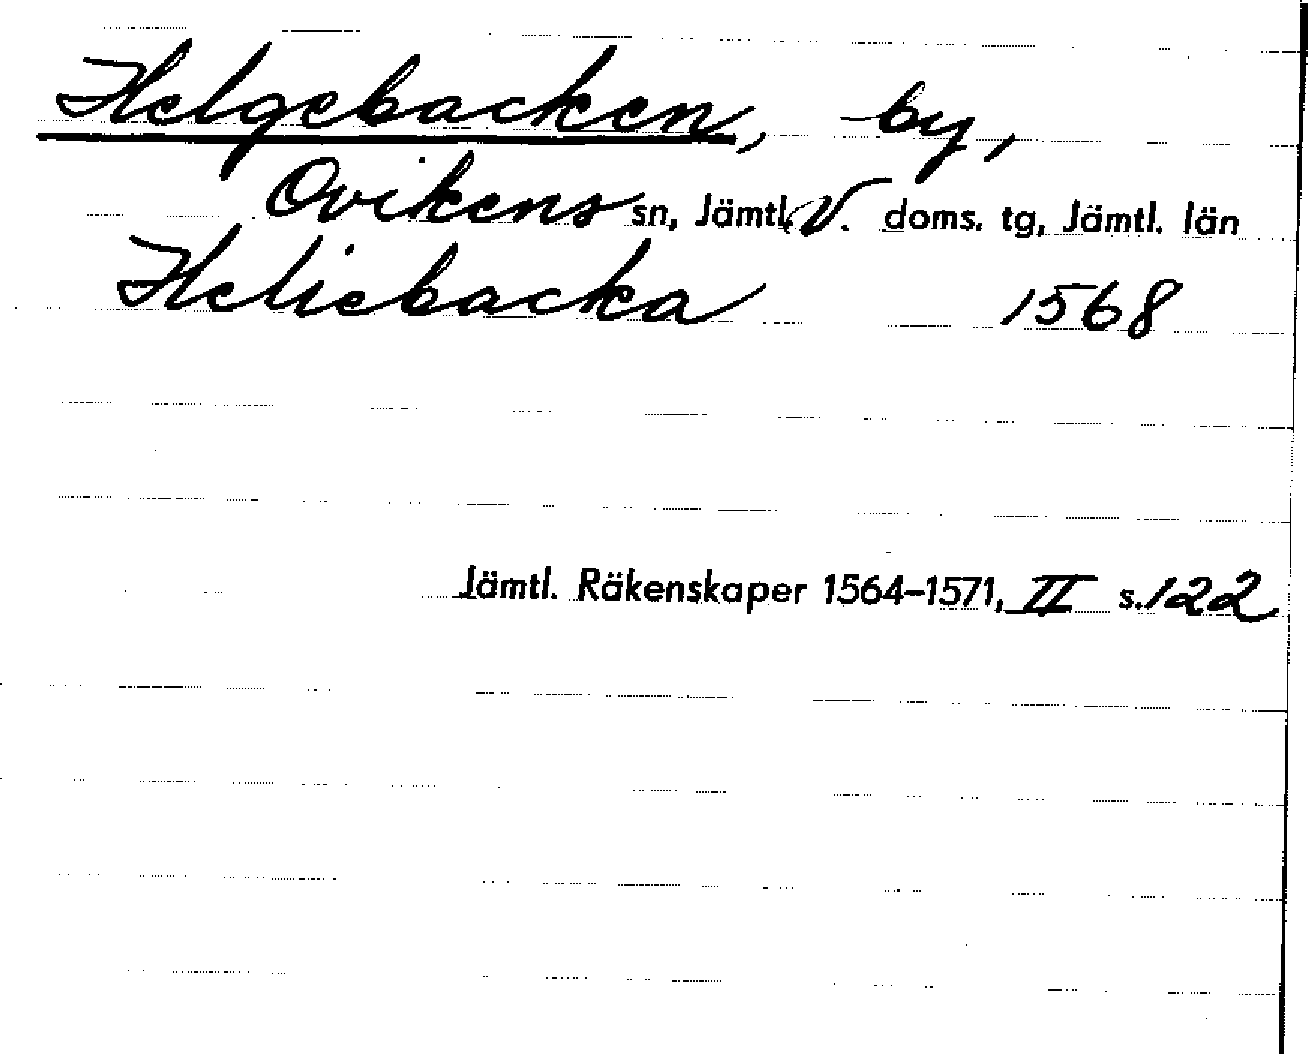 Helgebacken, by,
Ovikens sn, Jämtl. V. doms. tg, Jämtl. län
Heliebacka 1568
Jämtl. Räkenskaper 1564–1571, II s. 122